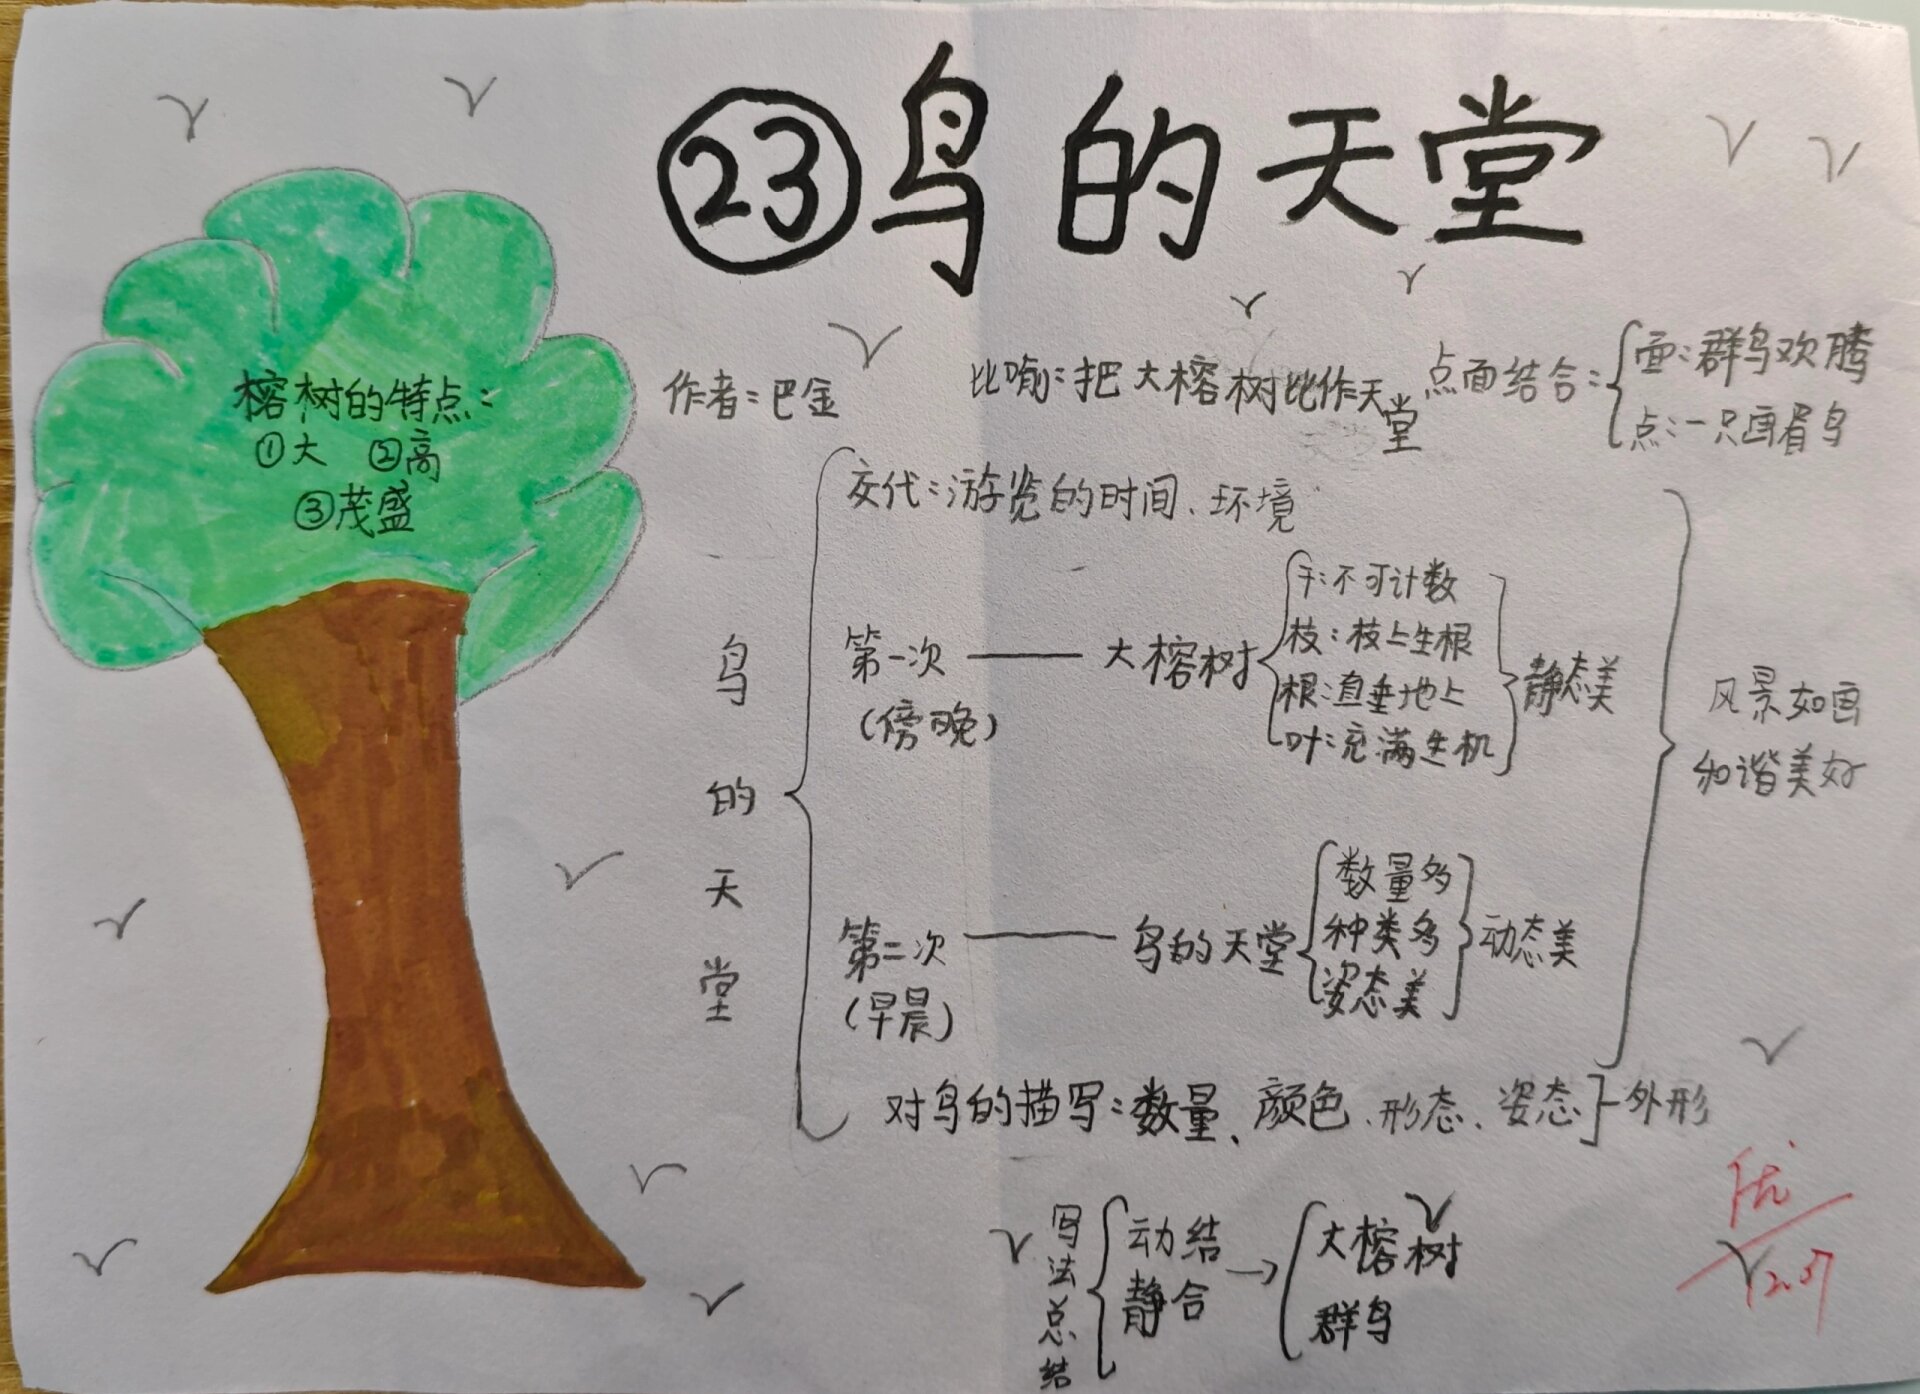 ㉓鸟的天堂
榕树的特点:
①大 ②高
③茂盛
作者:巴金
比喻:把大榕树比作天堂
点面结合:
面:群鸟欢腾
点:一只画眉鸟
鸟的天堂
交代:游览的时间、环境
第一次
(傍晚)
大榕树
干:不可计数
枝:枝上生根
根:直垂地上
叶:充满生机
静态美
第二次
(早晨)
鸟的天堂
数量多
种类多
姿态美
动态美
风景如画
和谐美好
对鸟的描写:数量、颜色、形态、姿态
外形
写法总结
动结
静合
大榕树
群鸟
优